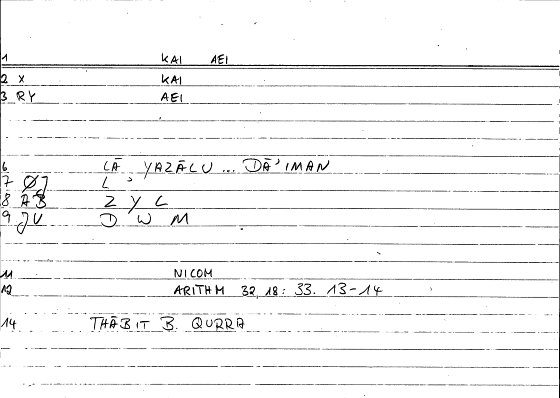 1 KAI AEI
2 X KAI
3 RY AEI
6 LĀ YAZĀLU ... DĀ'IMAN
7 ØJ L '
8 AB Z Y L
9 JU D W M
11 NICOM
12 ARITHM 32, 18: 33. 13-14
14 THĀBIT B. QURRA